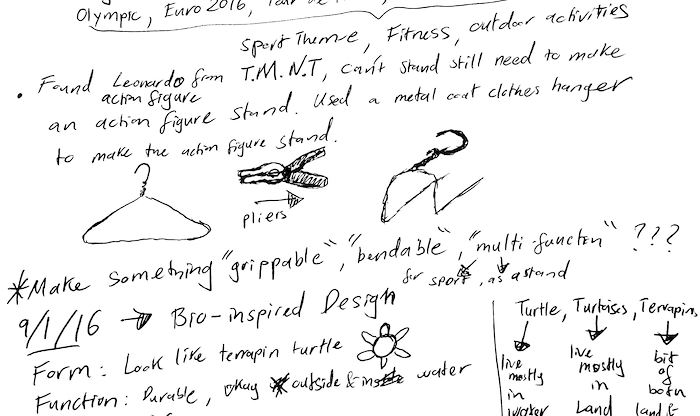 Olympic, Euro 2016, Tour de
Sport Theme, Fitness, outdoor activities
• Found Leonardo from T.M.N.T, can't stand still need to make
action figure
an action figure stand. Used a metal coat clothes hanger
to make the action figure stand.
pliers
*Make something "grippable", "bendable", "multi-functon" ???
for sport, as a stand
9/1/16 → Bio-inspired Design
Form: Look like terrapin turtle
Function: Durable, okay outside & water
Turtle, Turtoises, Terrapins
live mostly in water
live mostly in Land
bit of both land &